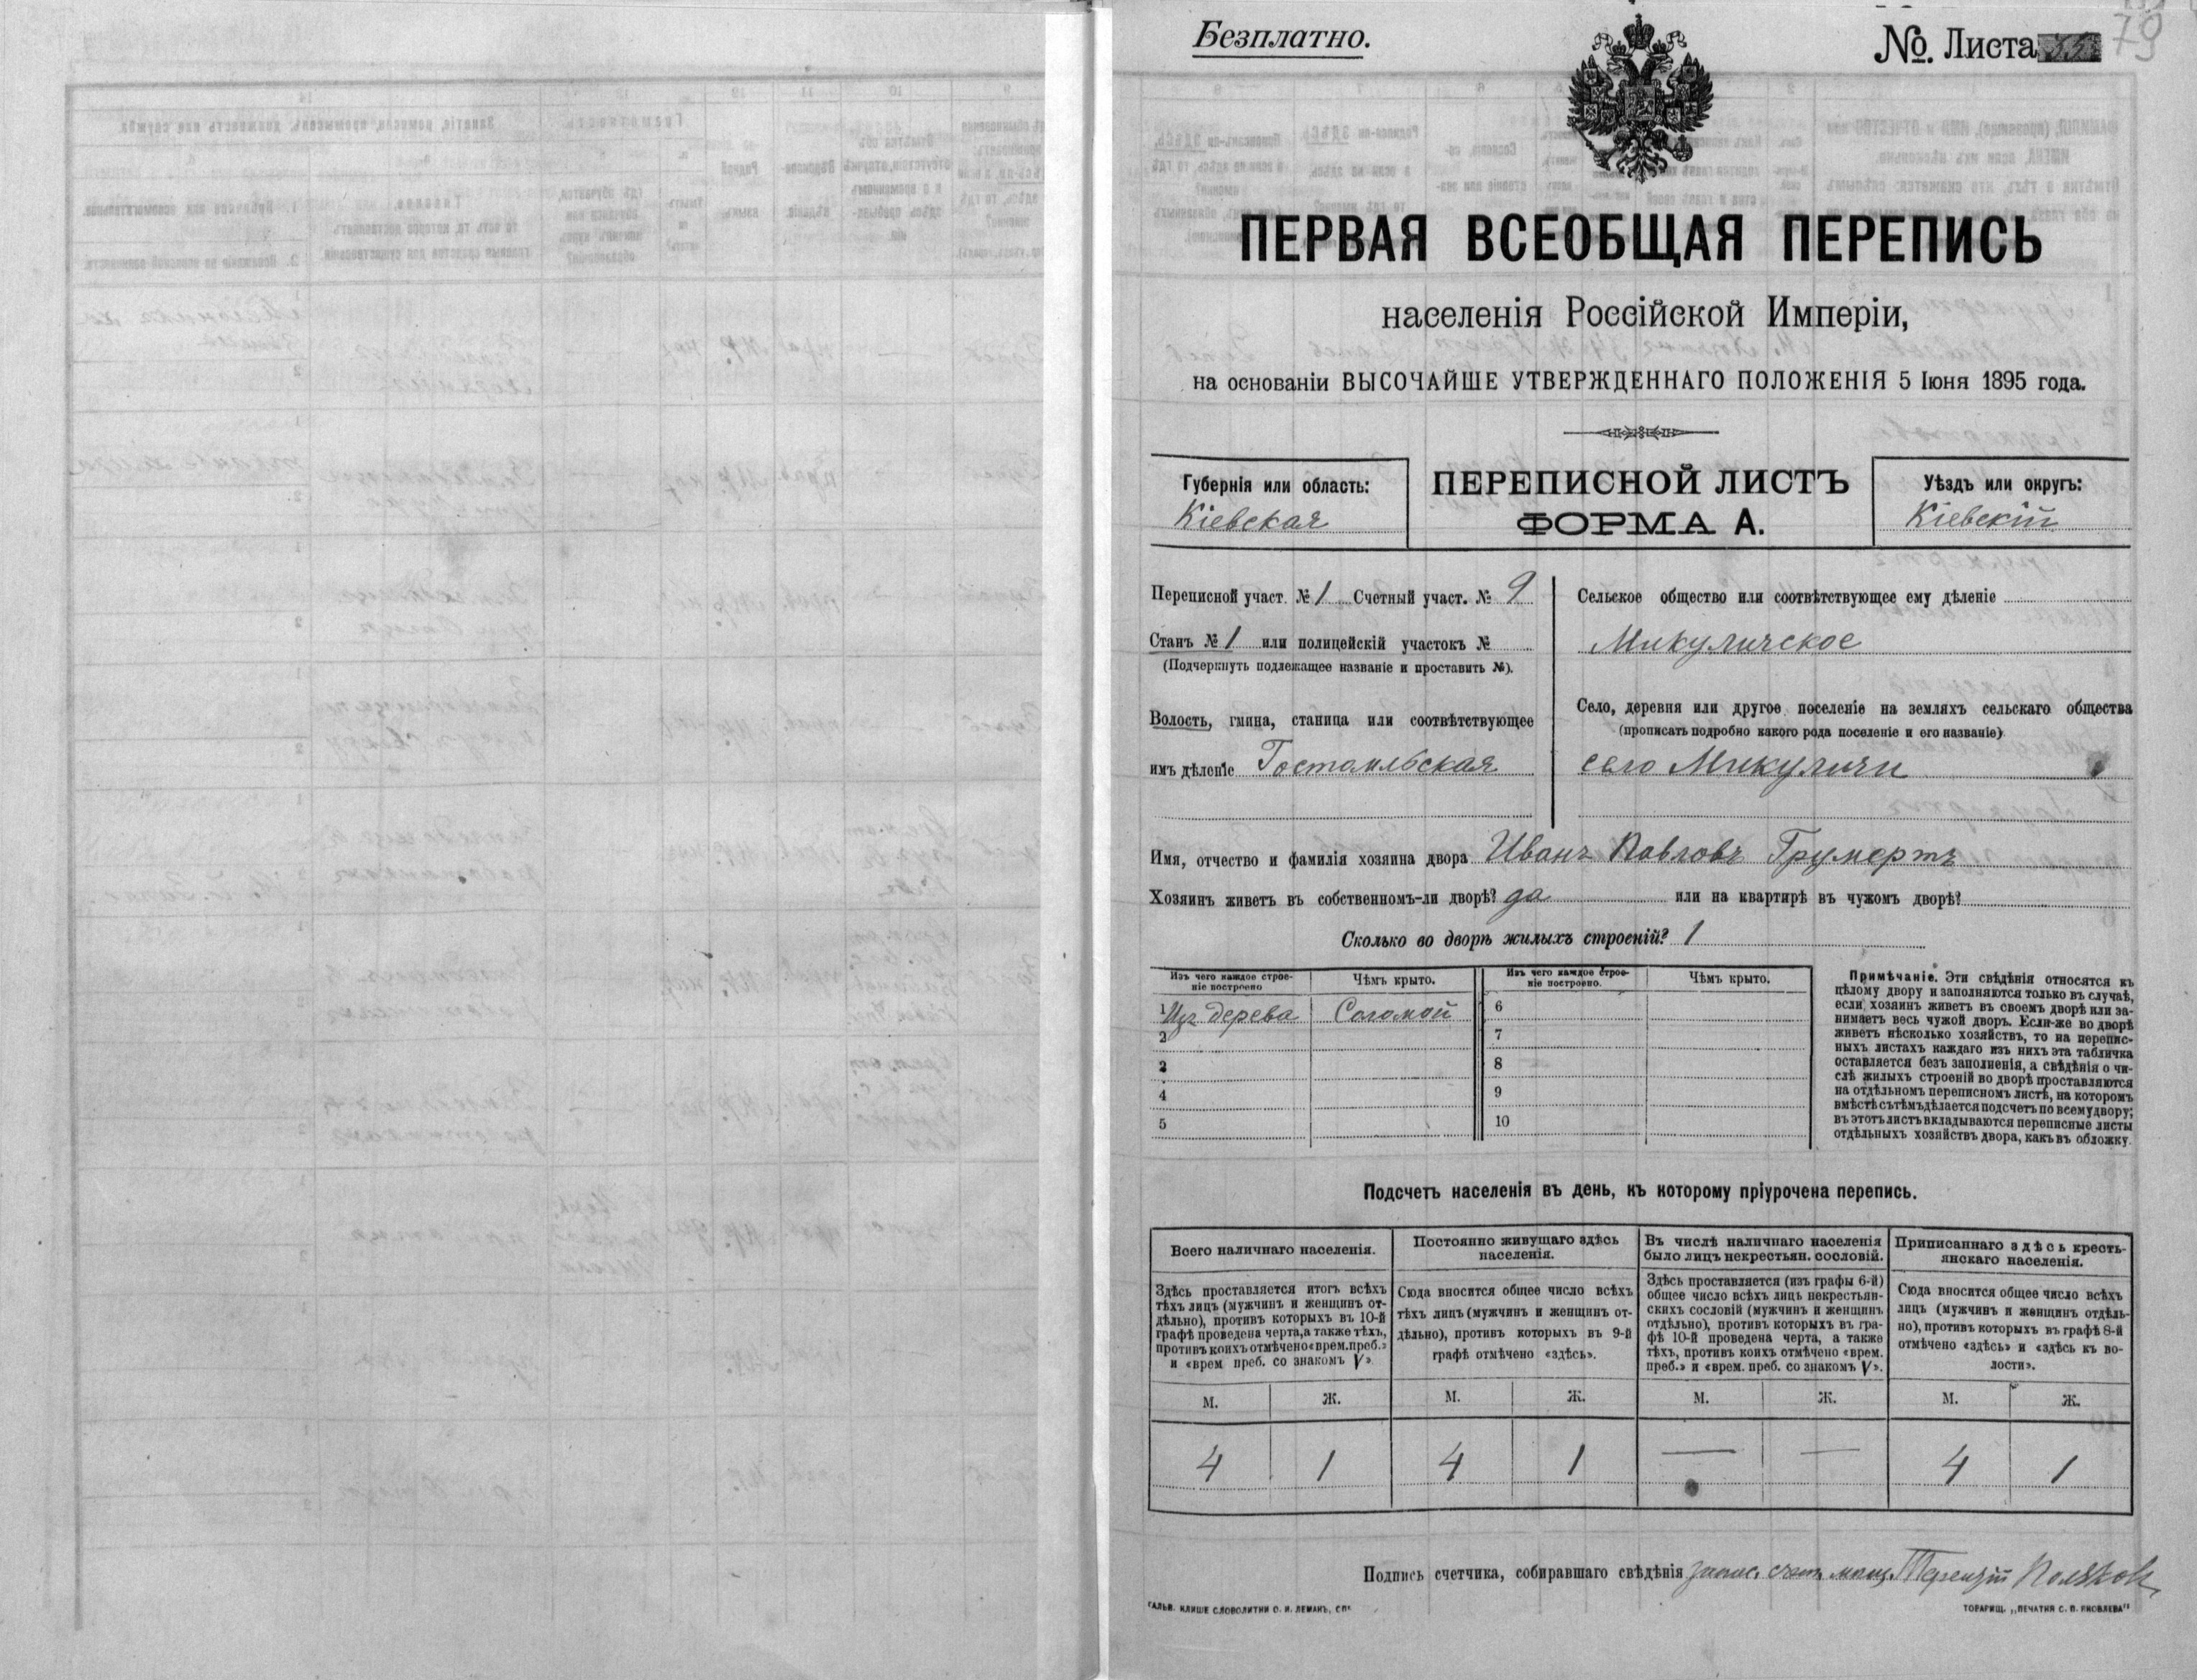 Безплатно.
№. Листа
79
ПЕРВАЯ ВСЕОБЩАЯ ПЕРЕПИСЬ
населенія Россійской Имперіи,
на основаніи ВЫСОЧАЙШЕ УТВЕРЖДЕННАГО ПОЛОЖЕНІЯ 5 Іюня 1895 года.
Губернія или область:
Кіевская
ПЕРЕПИСНОЙ ЛИСТЪ
ФОРМА А.
Уѣздъ или округъ:
Кіевскій
Переписной участ. № 1 Счетный участ. № 9
Станъ № 1 или полицейскій участокъ №
(Подчеркнуть подлежащее названіе и проставить №).
Волость, гмина, станица или соотвѣтствующее
имъ дѣленіе Гостомльская
Сельское общество или соотвѣтствующее ему дѣленіе
Микуличское
Село, деревня или другое поселеніе на земляхъ сельскаго общества
(прописать подробно какого рода поселеніе и его названіе)
село Микуличи
Имя, отчество и фамилія хозяина двора Иванъ Павловъ
Хозяинъ живетъ въ собственномъ-ли дворѣ? да или на квартирѣ въ чужомъ дворѣ?
Сколько во дворѣ жилыхъ строеній? 1
Изъ чего каждое строе-
ніе построено
Чѣмъ крыто.
Изъ чего каждое строе-
ніе построено.
Чѣмъ крыто.
1 Изъ дерева Соломой 6
2 7
3 8
4 9
5 10
Примѣчаніе. Эти свѣдѣнія относятся къ
цѣлому двору и заполняются только въ случаѣ,
если хозяинъ живетъ въ своемъ дворѣ или за-
нимаетъ весь чужой дворъ. Если-же во дворѣ
живетъ нѣсколько хозяйствъ, то на перепис-
ныхъ листахъ каждаго изъ нихъ эта табличка
оставляется безъ заполненія, а свѣдѣнія о чи-
слѣ жилыхъ строеній во дворѣ проставляются
на отдѣльномъ переписномъ листѣ, на которомъ
вмѣстѣ съ тѣмъ дѣлается подсчетъ по всему двору;
въ этотъ листъ вкладываются переписные листы
отдѣльныхъ хозяйствъ двора, какъ въ обложку.
Подсчетъ населенія въ день, къ которому пріурочена перепись.
Всего наличнаго населенія.
Здѣсь проставляется итогъ всѣхъ
тѣхъ лицъ (мужчинъ и женщинъ от-
дѣльно), противъ которыхъ въ 10-й
графѣ проведена черта, а также тѣхъ,
противъ коихъ отмѣчено «врем. преб.»
и «врем преб. со знакомъ V»
Постоянно живущаго здѣсь
населенія.
Сюда вносится общее число всѣхъ
тѣхъ лицъ (мужчинъ и женщинъ от-
дѣльно), противъ которыхъ въ 9-й
графѣ отмѣчено «здѣсь».
Въ числѣ наличнаго населенія
было лицъ некрестьян. сословій.
Здѣсь проставляется (изъ графы 6-й)
общее число всѣхъ лицъ некрестьян-
скихъ сословій (мужчинъ и женщинъ
отдѣльно), противъ которыхъ въ гра-
фѣ 10-й проведена черта, а также
тѣхъ, противъ коихъ отмѣчено «врем.
преб.» и «врем. преб. со знакомъ V».
Приписаннаго здѣсь кресть-
янскаго населенія.
Сюда вносится общее число всѣхъ
лицъ (мужчинъ и женщинъ отдѣль-
но), противъ которыхъ въ графѣ 8-й
отмѣчено «здѣсь» и «здѣсь къ во-
лости».
М. Ж. М. Ж. М. Ж. М. Ж.
4 1 4 1 — — 4 1
Подпись счетчика, собиравшаго свѣдѣнія Терентій
ГАЛЬВ. КЛИШЕ СЛОВОЛИТНИ О. И. ЛЕМАНЪ, СПБ
ТОВАРИЩ. „ПЕЧАТНЯ С. П. ЯКОВЛЕВА"